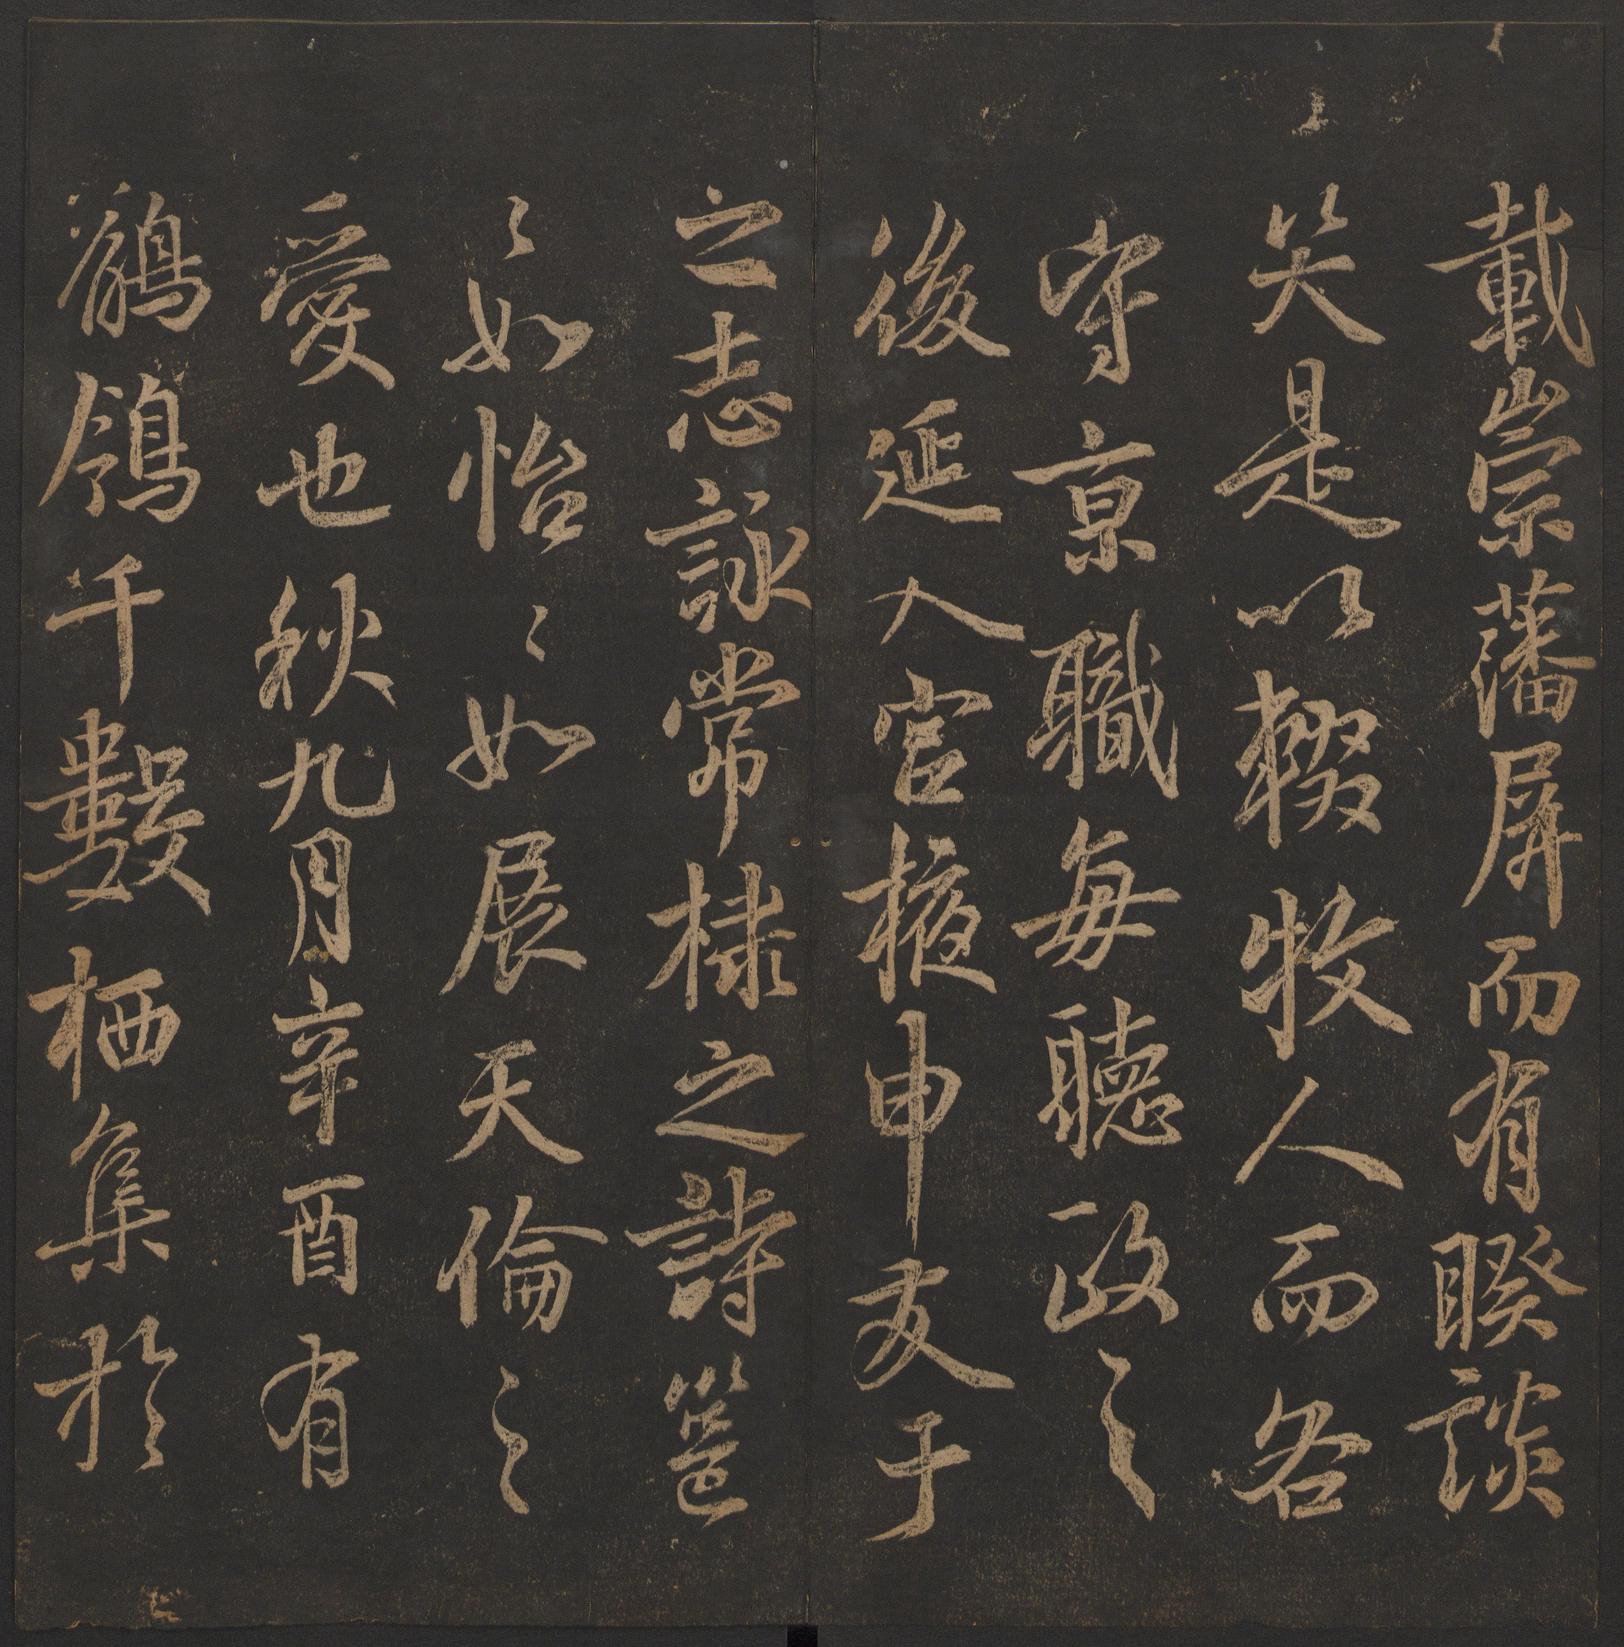 載崇藩屏而有睽談
笑是以輟牧人而各
守京職每聽政之
後延入宮掖申友于
之志詠常棣之詩邕
〻如怡〻如展天倫之
愛也秋九月辛酉有
鶺鴒千數栖集於